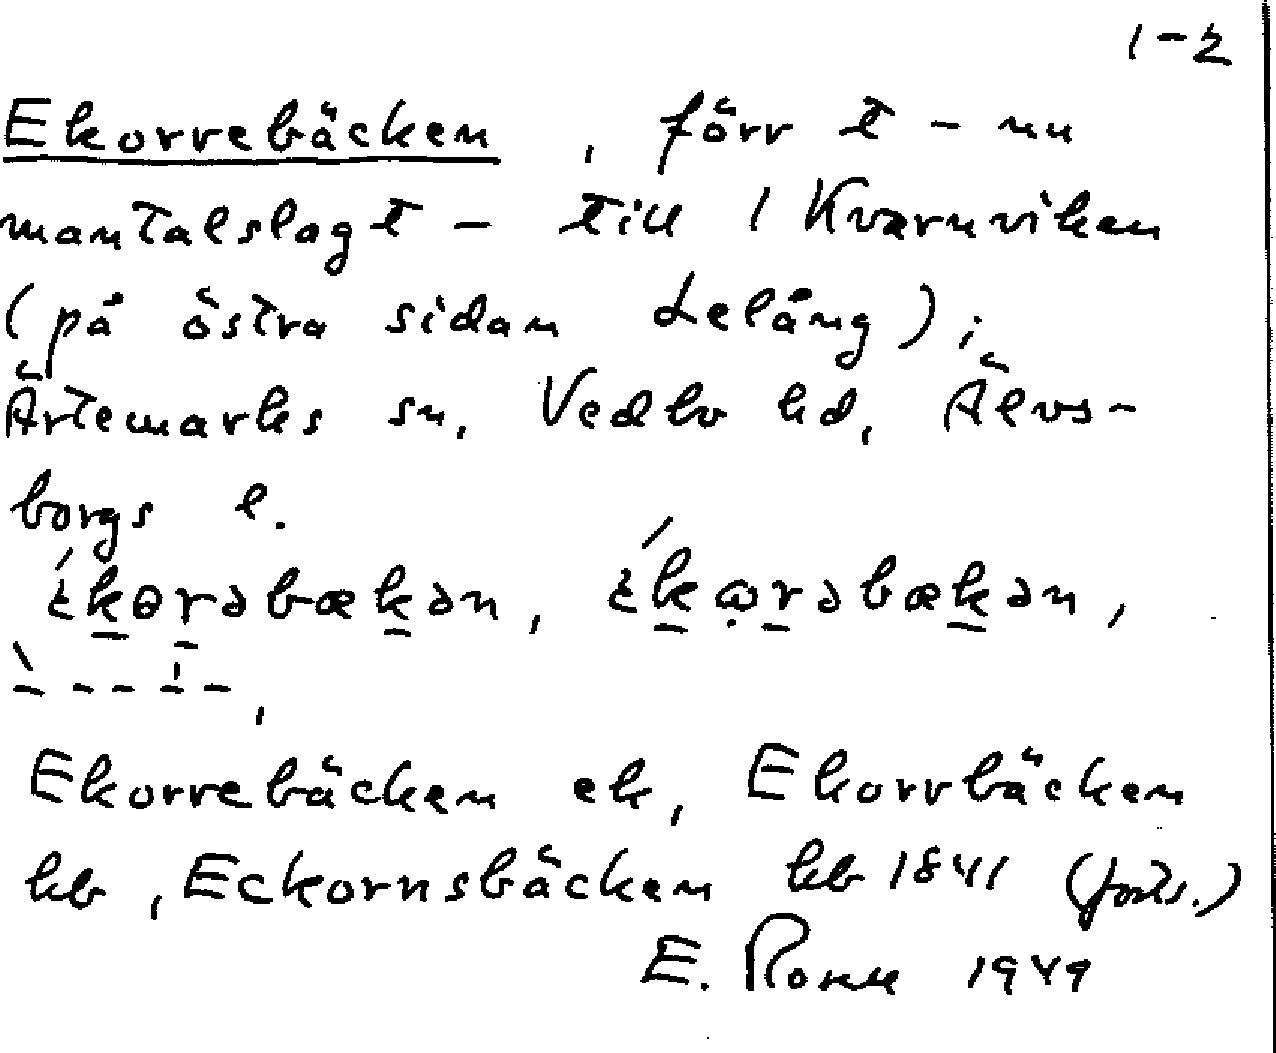 1-2
Ekorrebäcken, förr t - nu
mantalslagt - till 1 Kvarnviken
(på östra sidan Lelång) i
Ärtemarks sn, Vedbo hd, Älvs-
borgs l.
ɛ́kɵrəbækən, ɛ́kω̣rəbækən,
Ekorrebäcken ek, Ekorrbäcken
hb, Eckornsbäcken hb 1841 (forts.)
E. 1949